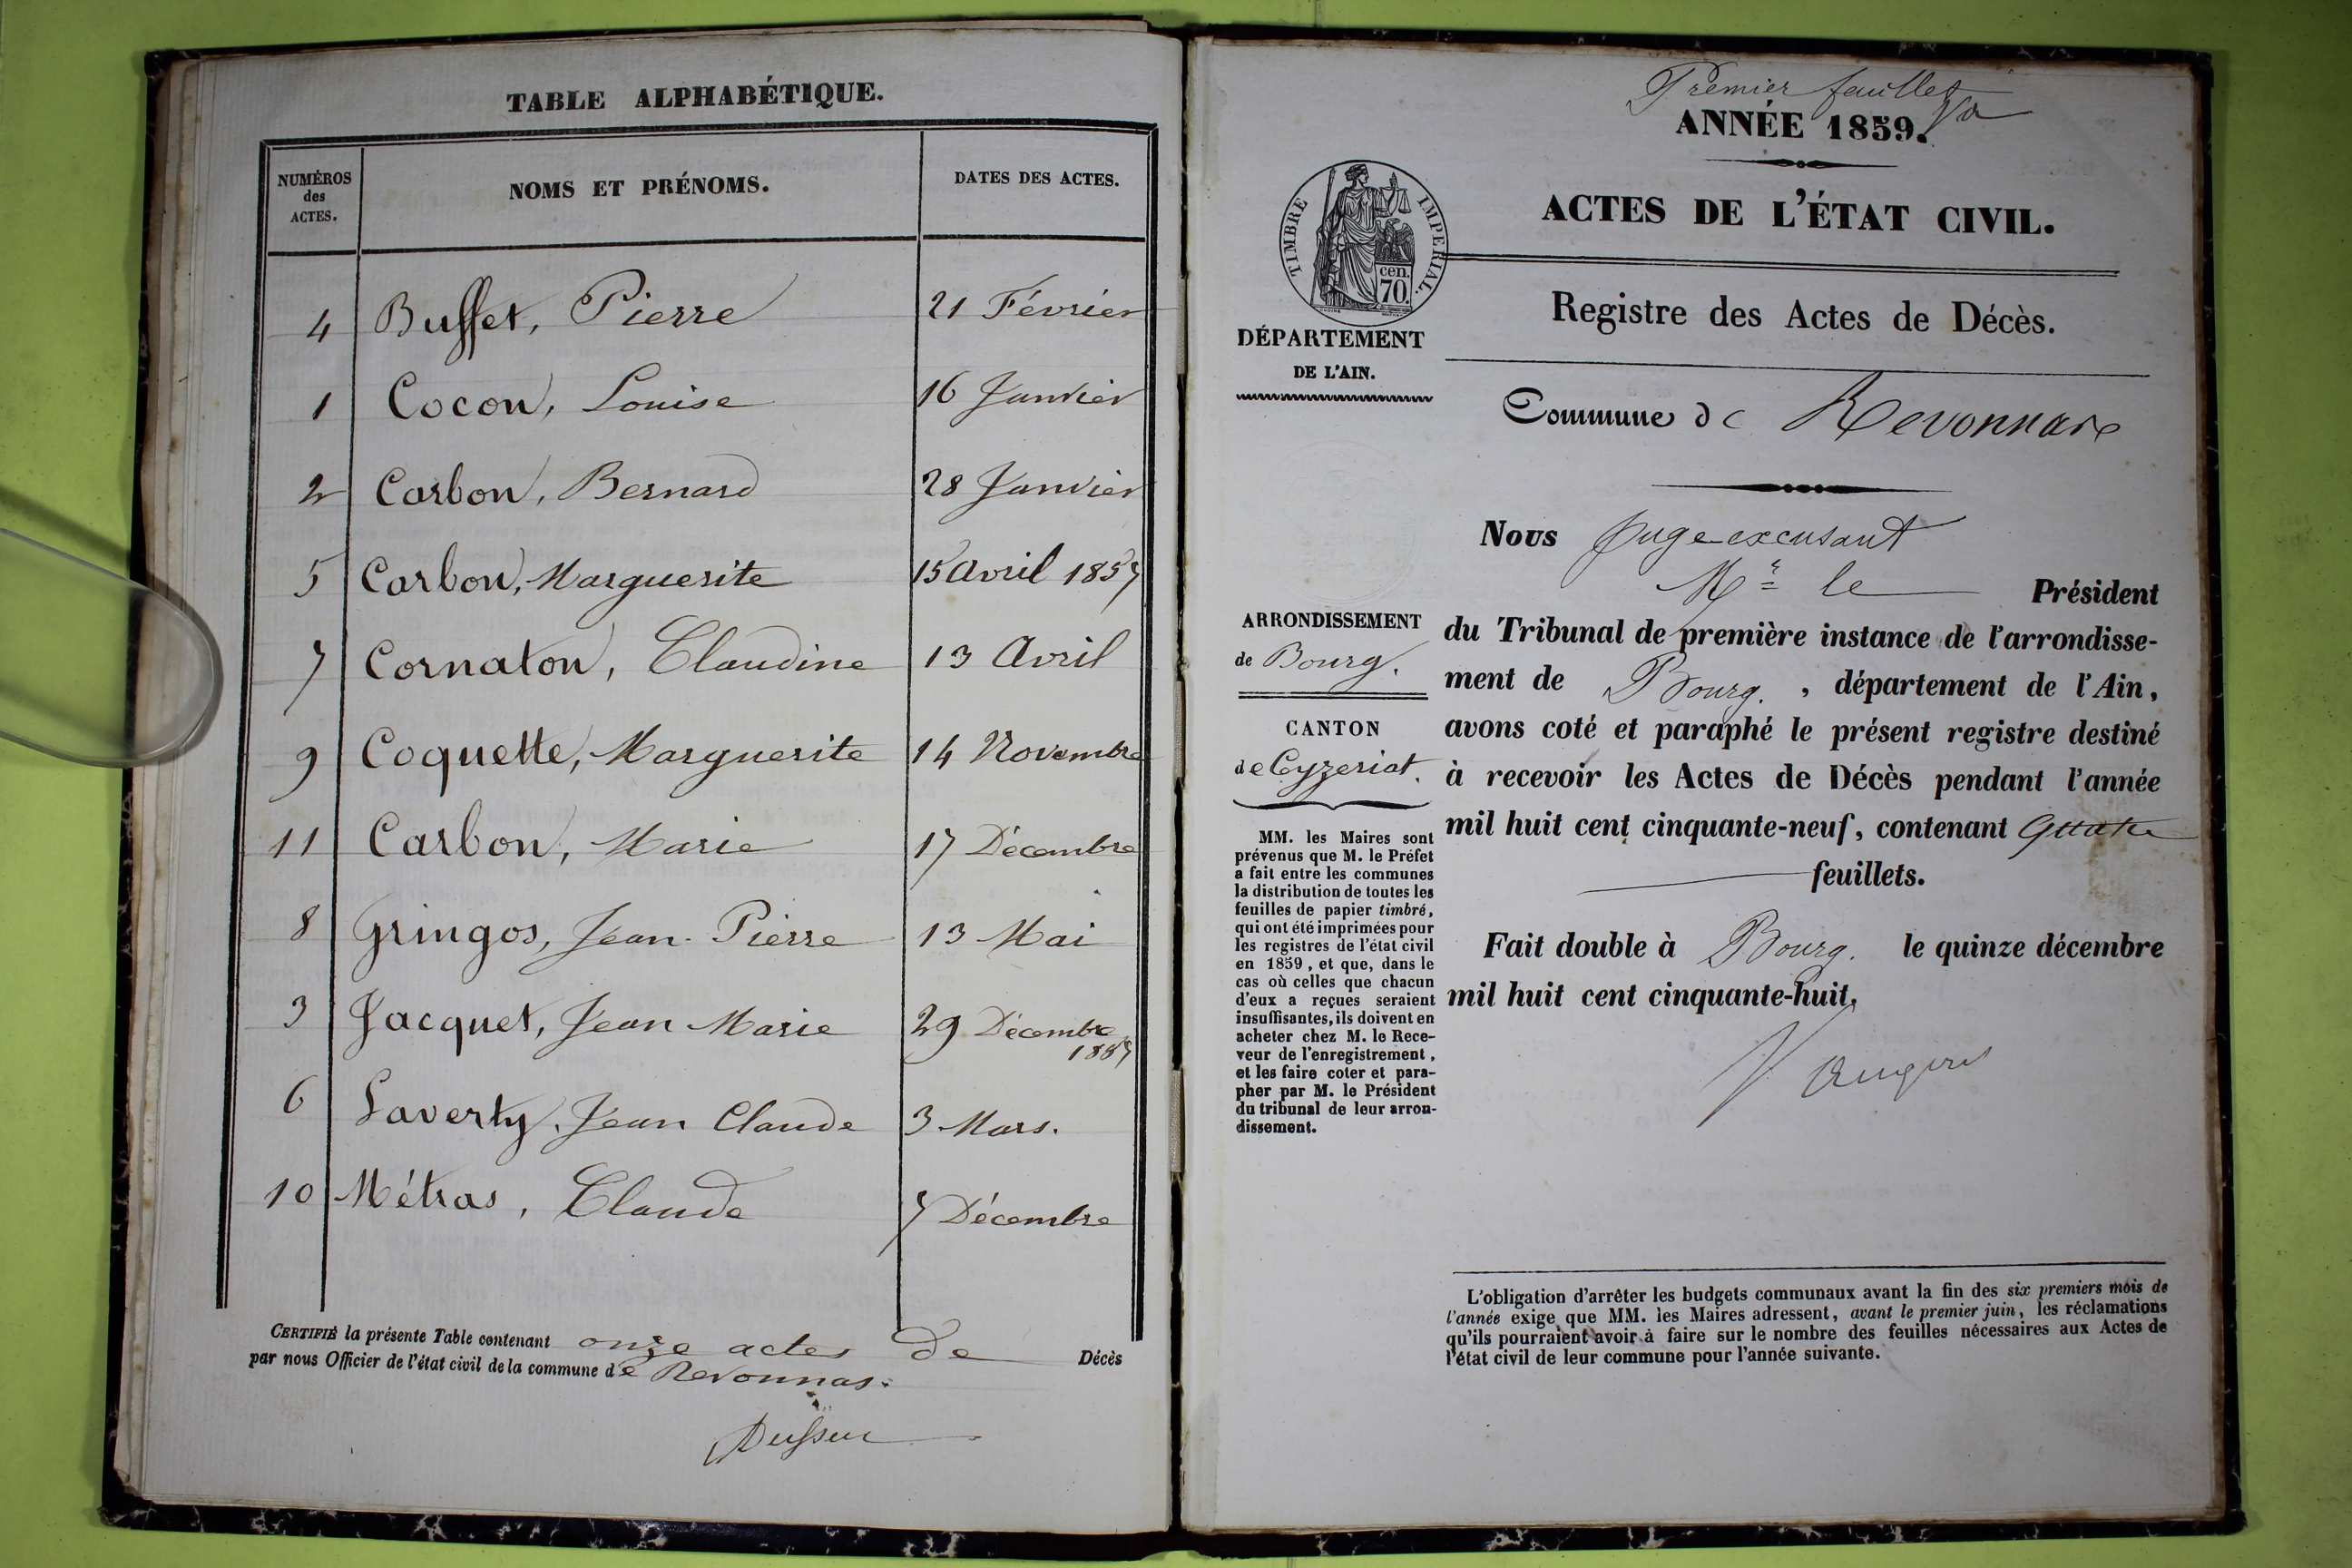 TABLE ALPHABÉTIQUE.
NUMÉROS des ACTES. NOMS ET PRÉNOMS. DATES DES ACTES.
4 Buffet, Pierre 21 Février
1 Cocon, Louise 16 Janvier
2 Carbon, Bernard 28 Janvier
5 Carbon, Marguerite 15 avril 1857
7 Cornaton, Claudine 13 Avril
9 Coquette, Marguerite 14 Novembre
11 Carbon, Marie 17 Décembre
8 Gringos, Jean-Pierre 13 Mai
3 Jacquet, Jean Marie 29 Décembre 1857
6 Laverty, Jean Claude 3 Mars.
10 Métras, Claude 7 Décembre
CERTIFIÉ la présente Table contenant onze actes de Décès
par nous Officier de l'état civil de la commune de Revonnas.
Premier feuillet
ANNÉE 1859.
ACTES DE L'ÉTAT CIVIL.
TIMBRE IMPERIAL.
cen.
70.
Registre des Actes de Décès.
DÉPARTEMENT
DE L'AIN.
Commune de Revonnas
ARRONDISSEMENT
de Bourg.
CANTON
de Ceyzeriat.
MM. les Maires sont
prévenus que M. le Préfet
a fait entre les communes
la distribution de toutes les
feuilles de papier timbré,
qui ont été imprimées pour
les registres de l'état civil
en 1859, et que, dans le
cas où celles que chacun
d'eux a reçues seraient
insuffisantes, ils doivent en
acheter chez M. le Rece-
veur de l'enregistrement,
et les faire coter et para-
pher par M. le Président
du tribunal de leur arron-
dissement.
Nous Juge excusant
Mr le Président
du Tribunal de première instance de l'arrondisse-
ment de Bourg. , département de l'Ain,
avons coté et paraphé le présent registre destiné
à recevoir les Actes de Décès pendant l'année
mil huit cent cinquante-neuf, contenant quatre
feuillets.
Fait double à Bourg. le quinze décembre
mil huit cent cinquante-huit,
L'obligation d'arrêter les budgets communaux avant la fin des six premiers mois de
l'année exige que MM. les Maires adressent, avant le premier juin, les réclamations
qu'ils pourraient avoir à faire sur le nombre des feuilles nécessaires aux Actes de
l'état civil de leur commune pour l'année suivante.